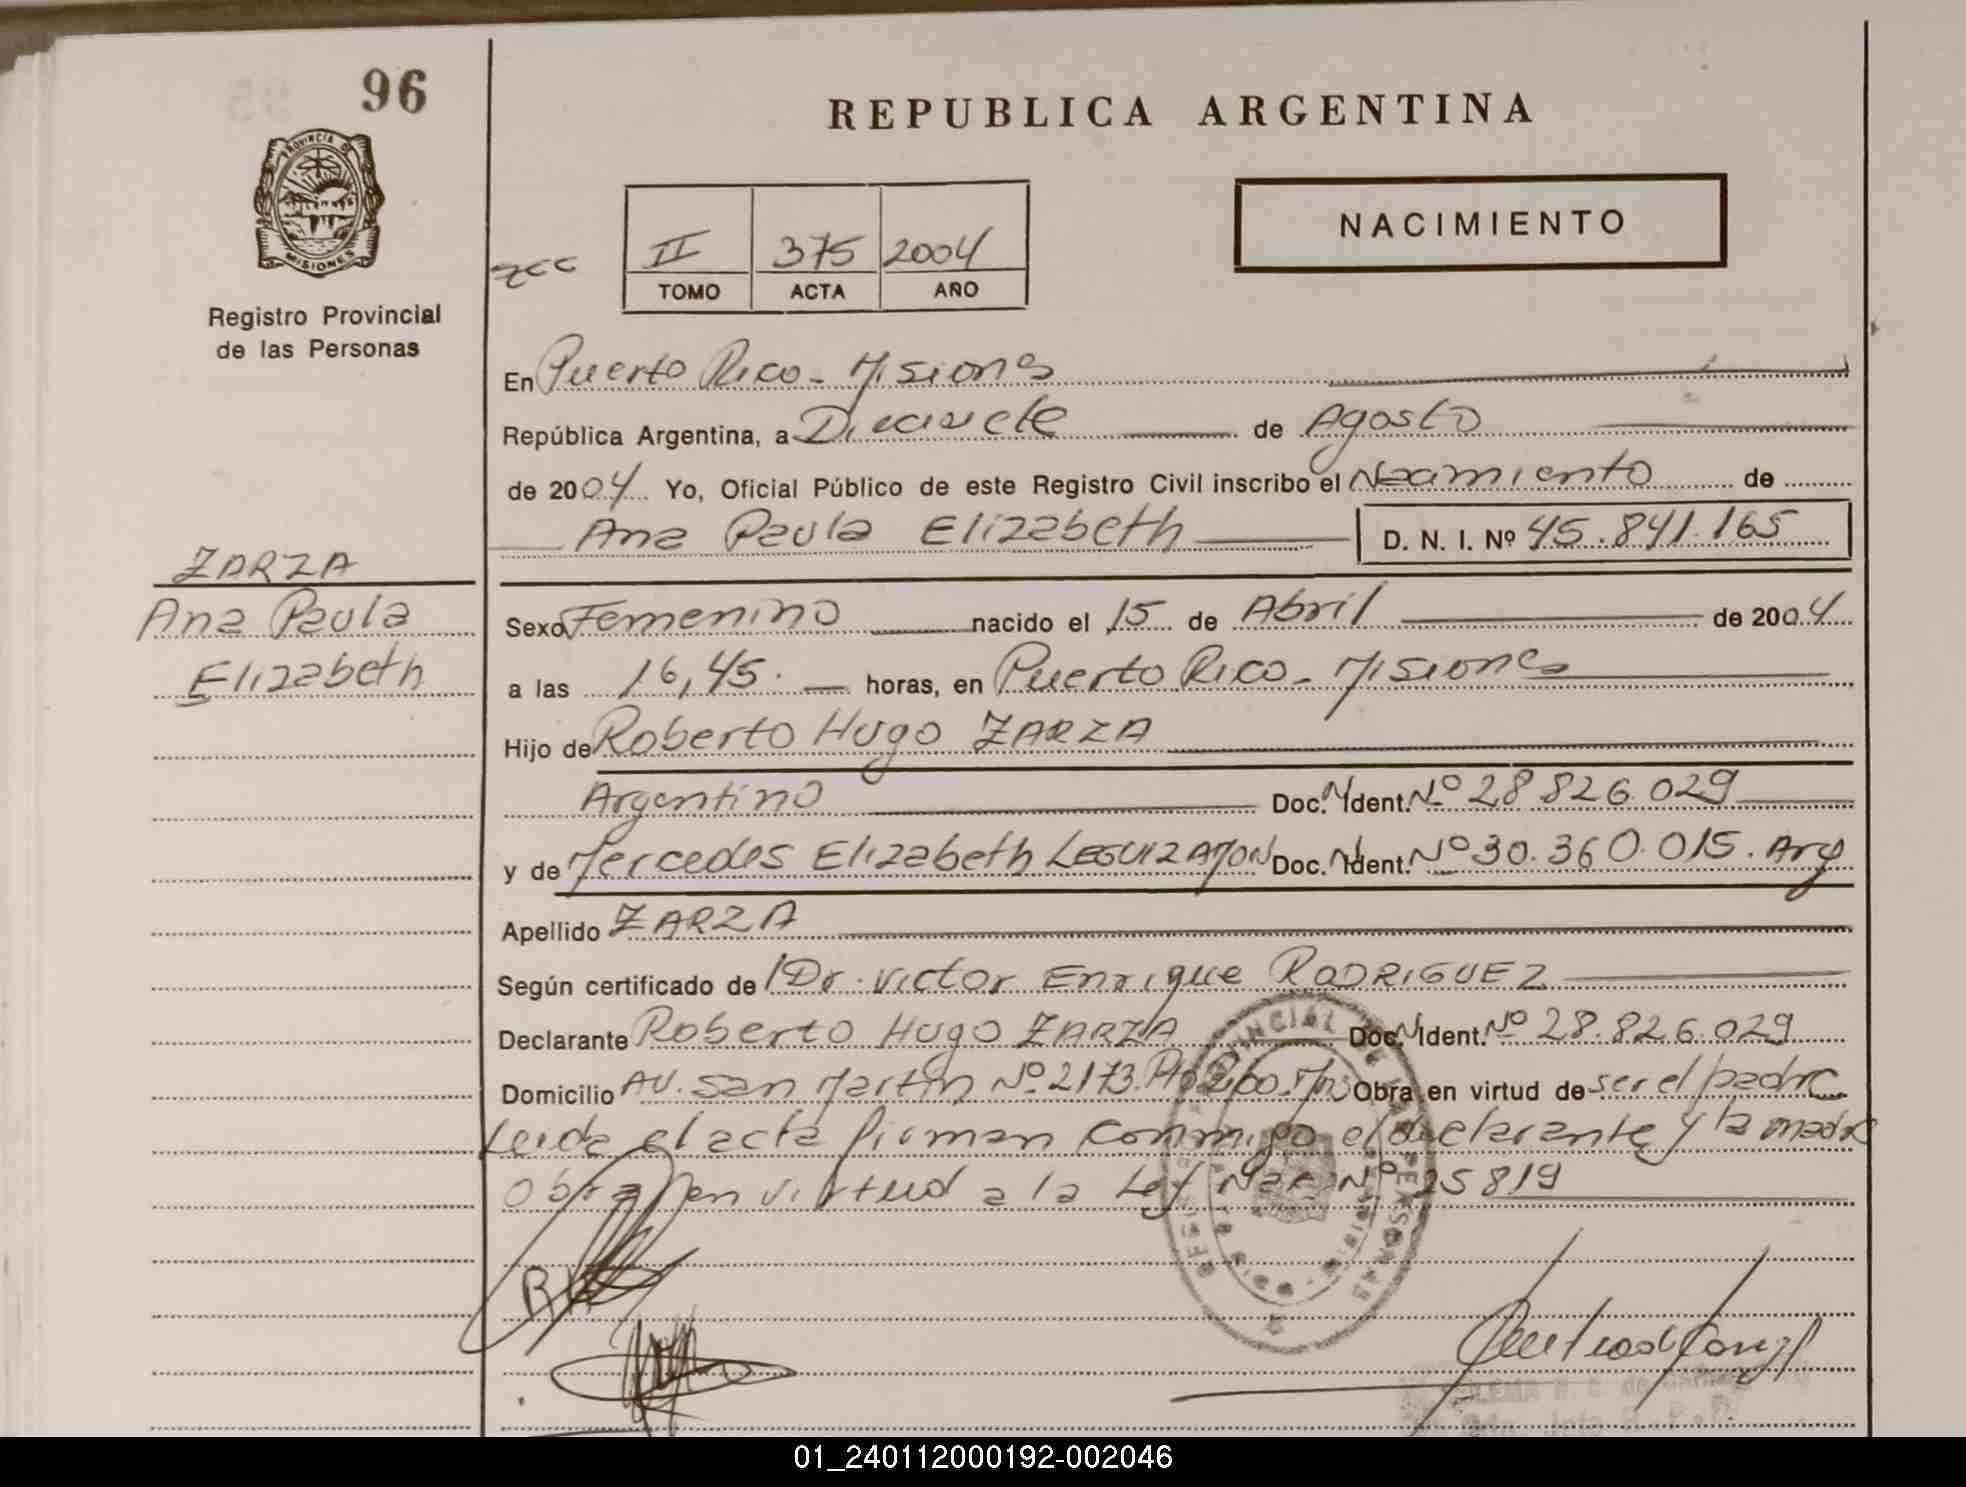 96
REPUBLICA ARGENTINA
PROVINCIA DE
MISIONES
Registro Provincial
de las Personas
NACIMIENTO
II 375 2004
TOMO ACTA AÑO
En Puerto Rico - Misiones
República Argentina, a Diecisiete de Agosto
de 2004 Yo, Oficial Público de este Registro Civil inscribo el Nacimiento de
Ana Paula Elizabeth D. N. I. Nº 45.841.165
ZARZA
Ana Paula
Elizabeth
Sexo Femenino nacido el 15 de Abril de 2004
a las 16,45. horas, en Puerto Rico - Misiones
Hijo de Roberto Hugo ZARZA
Argentino Doc. Ident. Nº 28.826.029
y de Mercedes Elizabeth LEGUIZAMON Doc. Ident. Nº 30.360.015. Arg
Apellido ZARZA
Según certificado de Dr. Victor Enrique RODRIGUEZ
Declarante Roberto Hugo ZARZA Doc. Ident. Nº 28.826.029
Domicilio AV. San Martin Nº 2173. Pto Rico. Mns Obra en virtud de ser el padre
Leida el acta firman conmigo el declarante y la madre
obra en virtud a la Ley Nac. Nº 25819
01_240112000192-002046